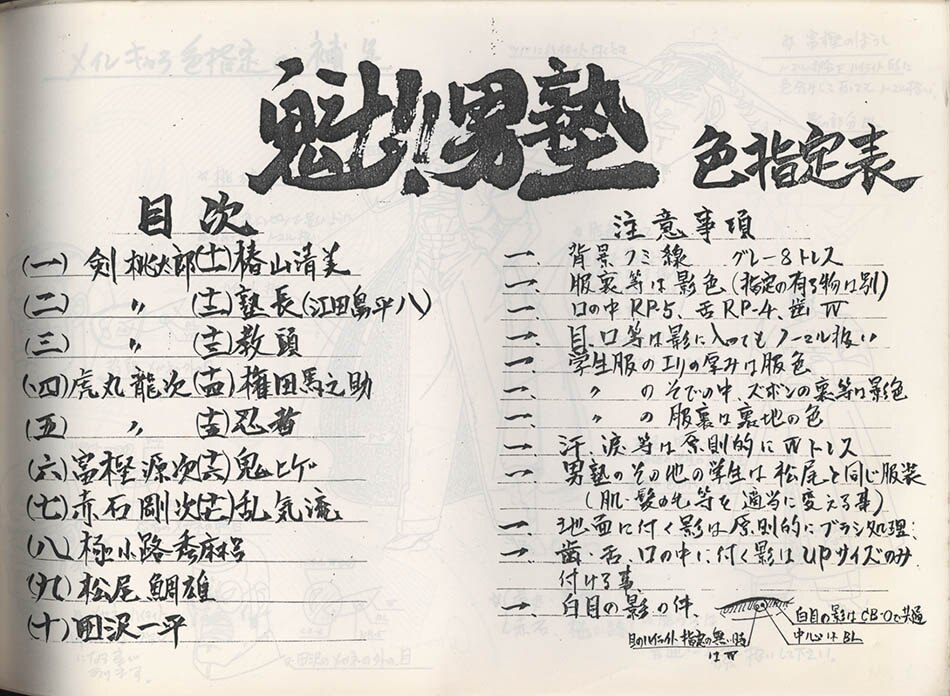 魁!!男塾 色指定表
目次
(一) 剣桃太郎
(二) 〃
(三) 〃
(四) 虎丸龍次
(五) 〃
(六) 富樫源次
(七) 赤石剛次
(八) 極小路秀麻呂
(九) 松尾鯛雄
(十) 田沢一平
(十一) 椿山清美
(十二) 塾長(江田島平八)
(十三) 教頭
(十四) 権田馬之助
(十五) 忍者
(十六) 鬼ヒゲ
(十七) 乱気流
注意事項
一、背景フミ線 グレー8トレス
一、服裏等は影色(指定の有る物は別)
一、口の中RP-5、舌RP-4、歯W
一、目、口等は影に入ってもノーマル扱い
一、学生服のエリの厚みは服色
一、〃 のそでの中、ズボンの裏等は影色
一、〃 の服裏は裏地の色
一、汗、涙等は原則的にWトレス
一、男塾のその他の学生は松尾と同じ服装
(肌・髪の毛等を適当に変える事)
一、地面に付く影は原則的にブラシ処理.
一、歯・舌、口の中に付く影はUPサイズのみ
付ける事、
一、白目の影の件、
白目の影はCB-0で共通
中心はBL
目のハイライト指定の無い時
はW
メイレキャラ色指定
補足